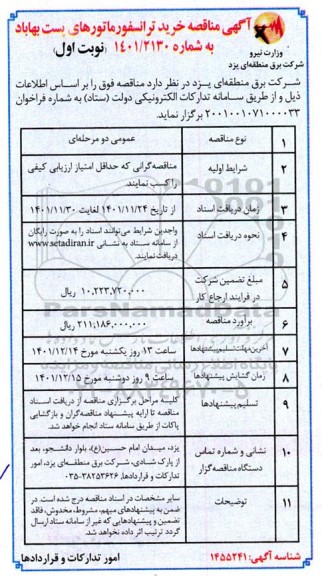 آگهی مناقصه خرید ترانسفورماتورهای پست بهاباد
به شماره ۱۴۰۱/۲۱۳۰ (نوبت اول)
وزارت نیرو
شرکت برق منطقه‌ای یزد
شرکت برق منطقه‌ای یزد در نظر دارد مناقصه فوق را بر اساس اطلاعات
ذیل و از طریق سامانه تدارکات الکترونیکی دولت (ستاد) به شماره فراخوان
۲۰۰۱۰۰۱۰۷۱۰۰۰۰۳۳ برگزار نماید.
۱ نوع مناقصه عمومی دو مرحله‌ای
۲ شرایط اولیه مناقصه‌گرانی که حداقل امتیاز ارزیابی کیفی
را کسب نمایند.
۳ زمان دریافت اسناد از تاریخ ۱۴۰۱/۱۱/۲۴ لغایت ۱۴۰۱/۱۱/۳۰
۴ نحوه دریافت اسناد واجدین شرایط می‌توانند اسناد را به صورت رایگان
از سامانه ستاد به نشانی www.setadiran.ir
دریافت نمایند.
۵ مبلغ تضمین شرکت
در فرایند ارجاع کار ۱۰,۲۲۳,۷۲۰,۰۰۰ ریال
۶ برآورد مناقصه ۲۱۱,۱۸۶,۰۰۰,۰۰۰ ریال
۷ آخرین مهلت تسلیم پیشنهادها ساعت ۱۳ روز یکشنبه مورخ ۱۴۰۱/۱۲/۱۴
۸ زمان گشایش پیشنهادها ساعت ۹ روز دوشنبه مورخ ۱۴۰۱/۱۲/۱۵
۹ تسلیم پیشنهادها کلیه مراحل برگزاری مناقصه از دریافت اسناد
مناقصه تا ارایه پیشنهاد مناقصه‌گران و بازگشایی
پاکات از طریق سامانه ستاد انجام خواهد شد.
۱۰ نشانی و شماره تماس
دستگاه مناقصه‌گزار یزد، میدان امام حسین(ع)، بلوار دانشجو، بعد
از پارک شادی، شرکت برق منطقه‌ای یزد، امور
تدارکات و قراردادها. ۳۸۲۵۳۶۲۶-۰۳۵
۱۱ توضیحات سایر مشخصات در اسناد مناقصه درج شده است. در
ضمن به پیشنهادهای مبهم، مشروط، مخدوش، فاقد
تضمین و پیشنهادهایی که غیر از سامانه ستاد ارسال
گردد ترتیب اثر داده نخواهد شد.
شناسه آگهی: ۱۴۵۵۲۴۱ امور تدارکات و قراردادها